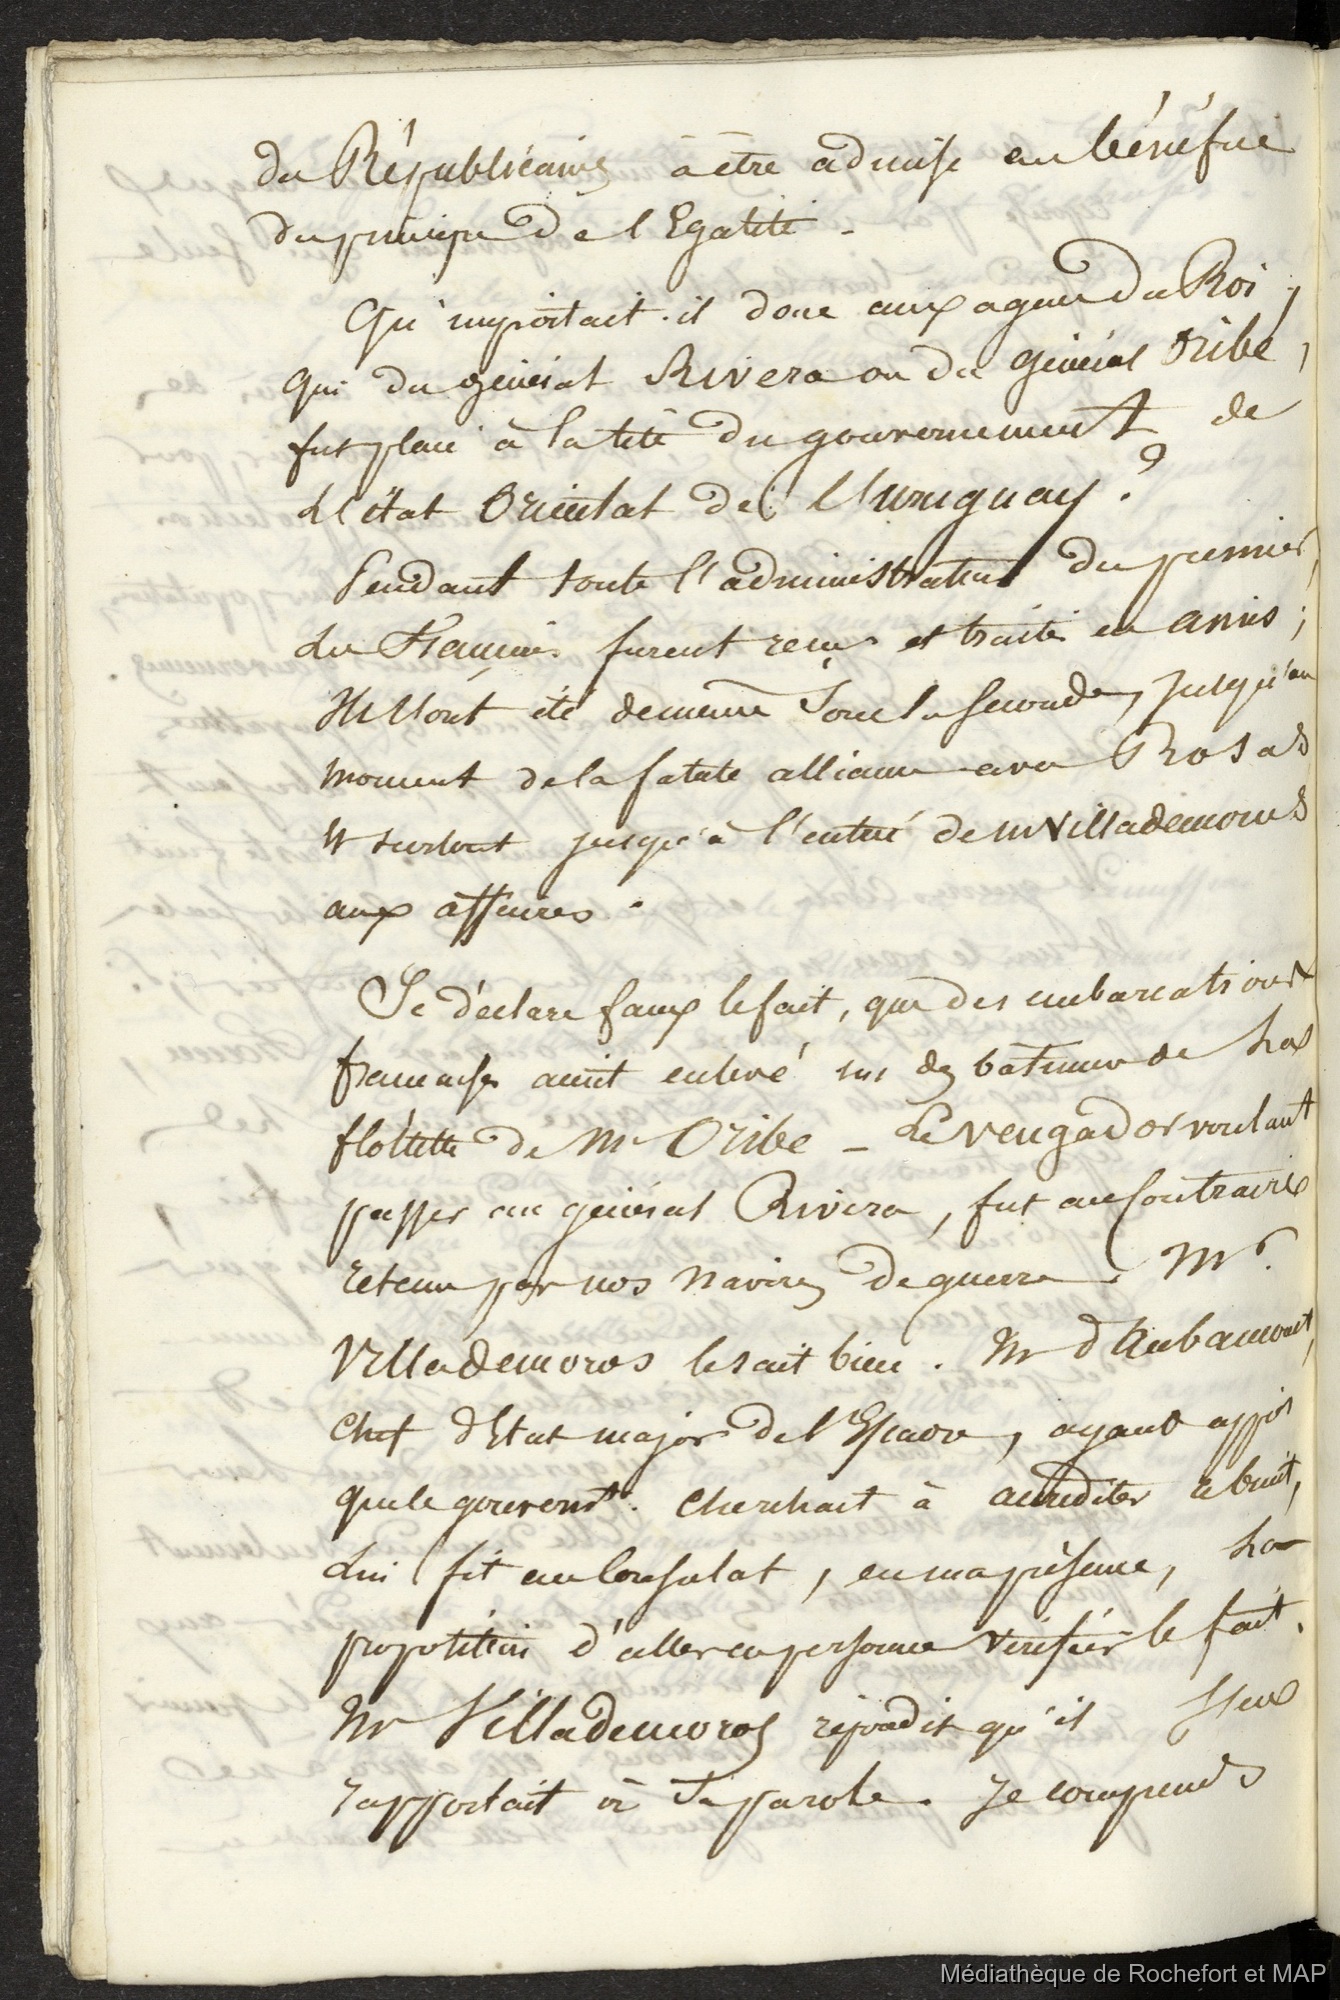 des Républicains à être admise au bénéfice
du principe de l'Egalité -
Qu'importait-il donc aux agens du Roi,
qui du général Rivera ou du général Oribe,
fut placé à la tête du gouvernement de
L'état Oriental de l'Uruguay ?
Pendant toute l'administration du premier,
Les Français furent reçus et traités en amis ;
Ils l'ont été de même sous la seconde, jusqu'au
moment de la fatale alliance avec Rosas
et surtout jusqu'à l'entrée de M Villademoros
aux affaires.
Je déclare faux le fait, que des embarcations
françaises aient enlevé les bâtimens de la
flotille de Mr Oribe - Le Vengador voulant
passer au général Rivera, fut au contraire
retenu par nos navires de guerre. Mr.
Villademoros le sait bien. Mr d'Aubamont,
Chef d'Etat major de l'Escadre, ayant appris
que le gouvernt. cherchait à accréditer ce bruit,
Lui fit au Consulat, en ma présence, la
proposition d'aller en personne vérifier le fait.
Mr Villademoros répondit qu'il s'en
rapportait à sa parole. Je comprends
Médiathèque de Rochefort et MAP